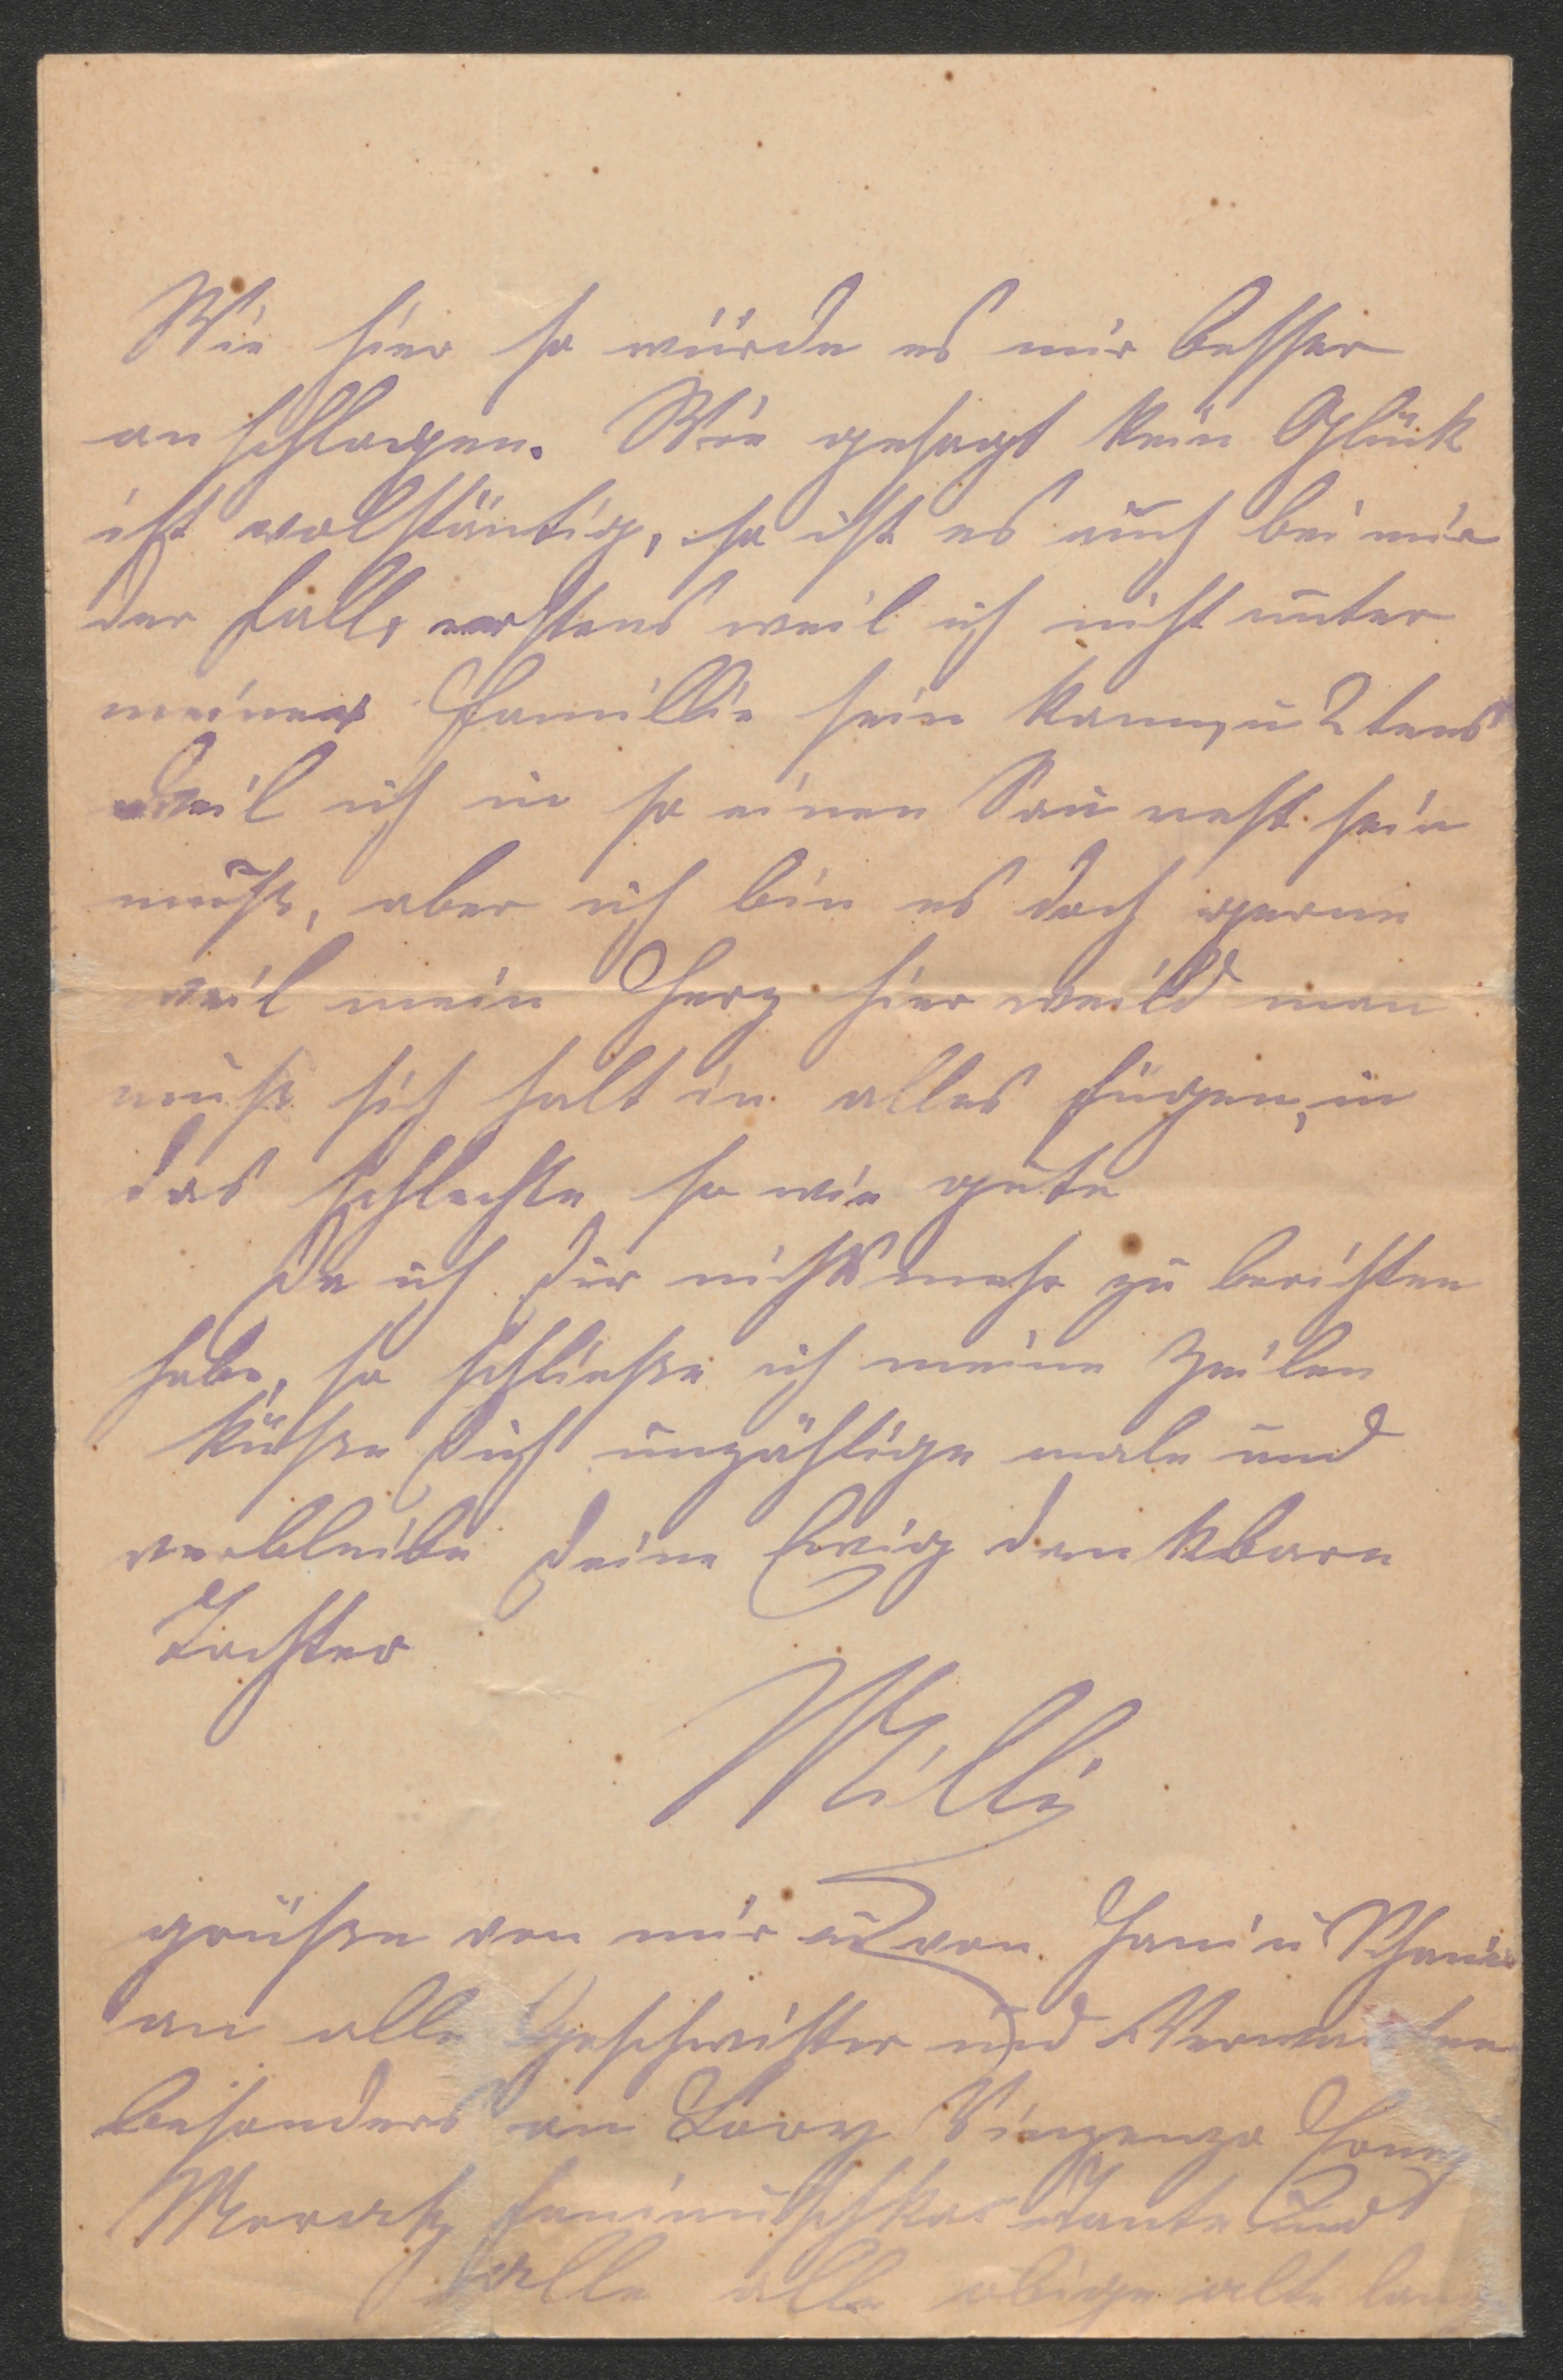 Wie hier so würde es mir besser
anschlagen. Wie gesagt kein Glück
ist volständig, so ist es auch bei mir
der Fall, erstens weil ich nicht unter
meiner Famillie sein kann, u 2tens
weil ich in so einen Sau nest sein
muß, aber ich bin es doch gerne
weil mein Herz hier weild man
muß sich halt in alles fügen, in
das schlechte so wie gute
Da ich Dir nichts mehr zu berichten
habe, so schließe ich meine Zeilen
küße Dich unzählige male und
verbleibe Deine Ewig dankbare
Tochter
Milli
grüße von mir u von
an alle Geschwister und
besonders an Vinzenz
Tante und
alle alle alte